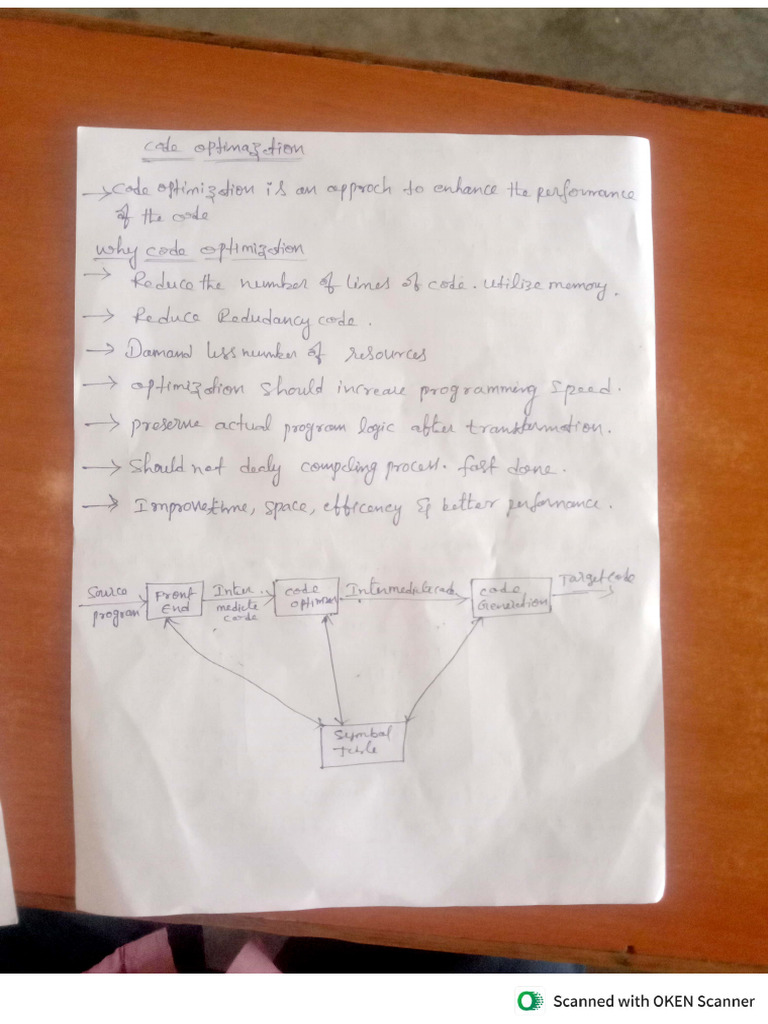 code optimaztion
→ code optimization is an approch to enhance the performance
of the code
why code optimization
→ Reduce the number of lines of code. utilize memory.
→ Reduce Redudancy code.
→ Damand less number of resources
→ optimization should increase programming speed.
→ preserve actual program logic after transformation.
→ should not dealy compiling process. fast done.
→ Improve time, space, efficency & better performance.
Source program
Front End
Inter mediate code
code optimizer
Intermediate code
code Generation
Target code
Symbol table
Scanned with OKEN Scanner